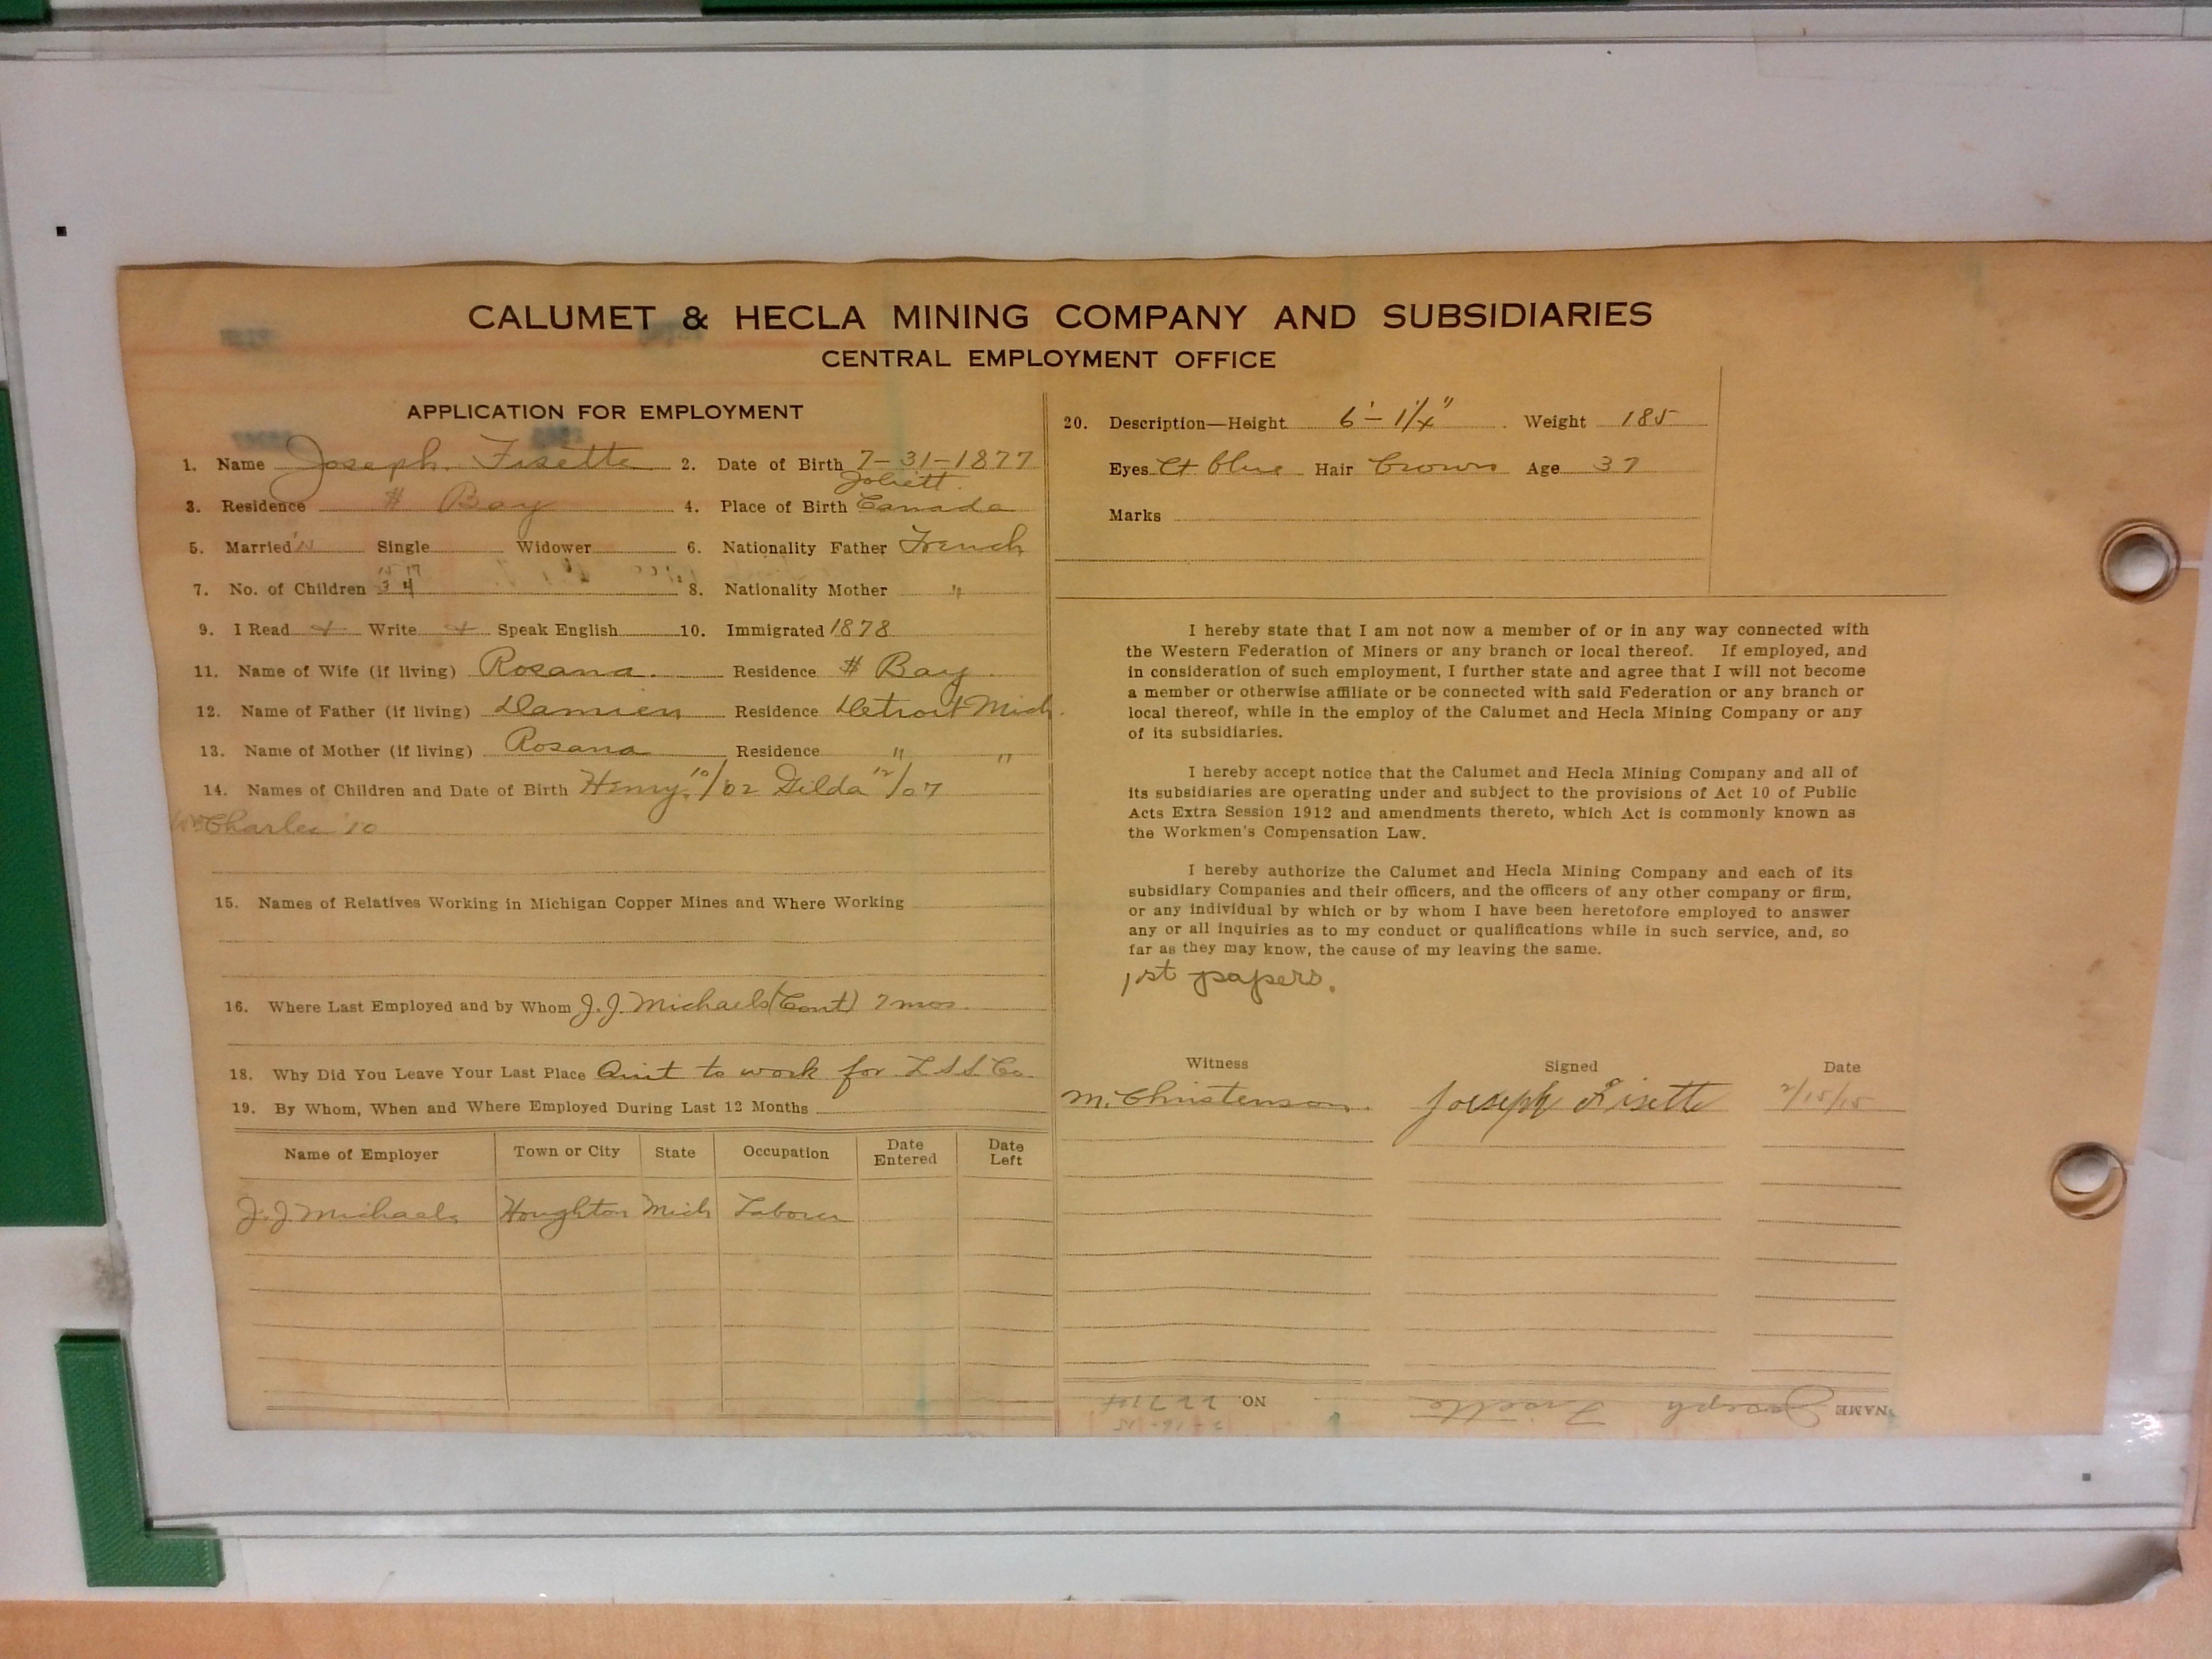 CALUMET & HECLA MINING COMPANY AND SUBSIDIARIES
CENTRAL EMPLOYMENT OFFICE
APPLICATION FOR EMPLOYMENT
1. Name Joseph Fisette 2. Date of Birth 7-31-1877
Joliett.
3. Residence # Bay 4. Place of Birth Canada
5. Married Single Widower 6. Nationality Father French
15 17
7. No. of Children 3 4 8. Nationality Mother "
9. I Read + Write + Speak English 10. Immigrated 1878
11. Name of Wife (if living) Rosana. Residence # Bay
12. Name of Father (if living) Damien Residence Detroit Mich.
13. Name of Mother (if living) Rosana Residence " "
14. Names of Children and Date of Birth Henry 10/02 Gilda 12/07
Charles '10
15. Names of Relatives Working in Michigan Copper Mines and Where Working
16. Where Last Employed and by Whom J. J. Michaels (Cont) 7 mos.
18. Why Did You Leave Your Last Place Quit to work for L S S Co.
19. By Whom, When and Where Employed During Last 12 Months
Name of Employer Town or City State Occupation Date Entered Date Left
J. J. Michaels Houghton Mich Laborer
20. Description—Height 6'-1 1/4" Weight 185
Eyes Lt blue Hair Brown Age 37
Marks
I hereby state that I am not now a member of or in any way connected with
the Western Federation of Miners or any branch or local thereof. If employed, and
in consideration of such employment, I further state and agree that I will not become
a member or otherwise affiliate or be connected with said Federation or any branch or
local thereof, while in the employ of the Calumet and Hecla Mining Company or any
of its subsidiaries.
I hereby accept notice that the Calumet and Hecla Mining Company and all of
its subsidiaries are operating under and subject to the provisions of Act 10 of Public
Acts Extra Session 1912 and amendments thereto, which Act is commonly known as
the Workmen's Compensation Law.
I hereby authorize the Calumet and Hecla Mining Company and each of its
subsidiary Companies and their officers, and the officers of any other company or firm,
or any individual by which or by whom I have been heretofore employed to answer
any or all inquiries as to my conduct or qualifications while in such service, and, so
far as they may know, the cause of my leaving the same.
1st papers.
Witness Signed Date
M. Christenson. Joseph Fisette 2/15/15
NAME Joseph Fisette NO.
2-16-15